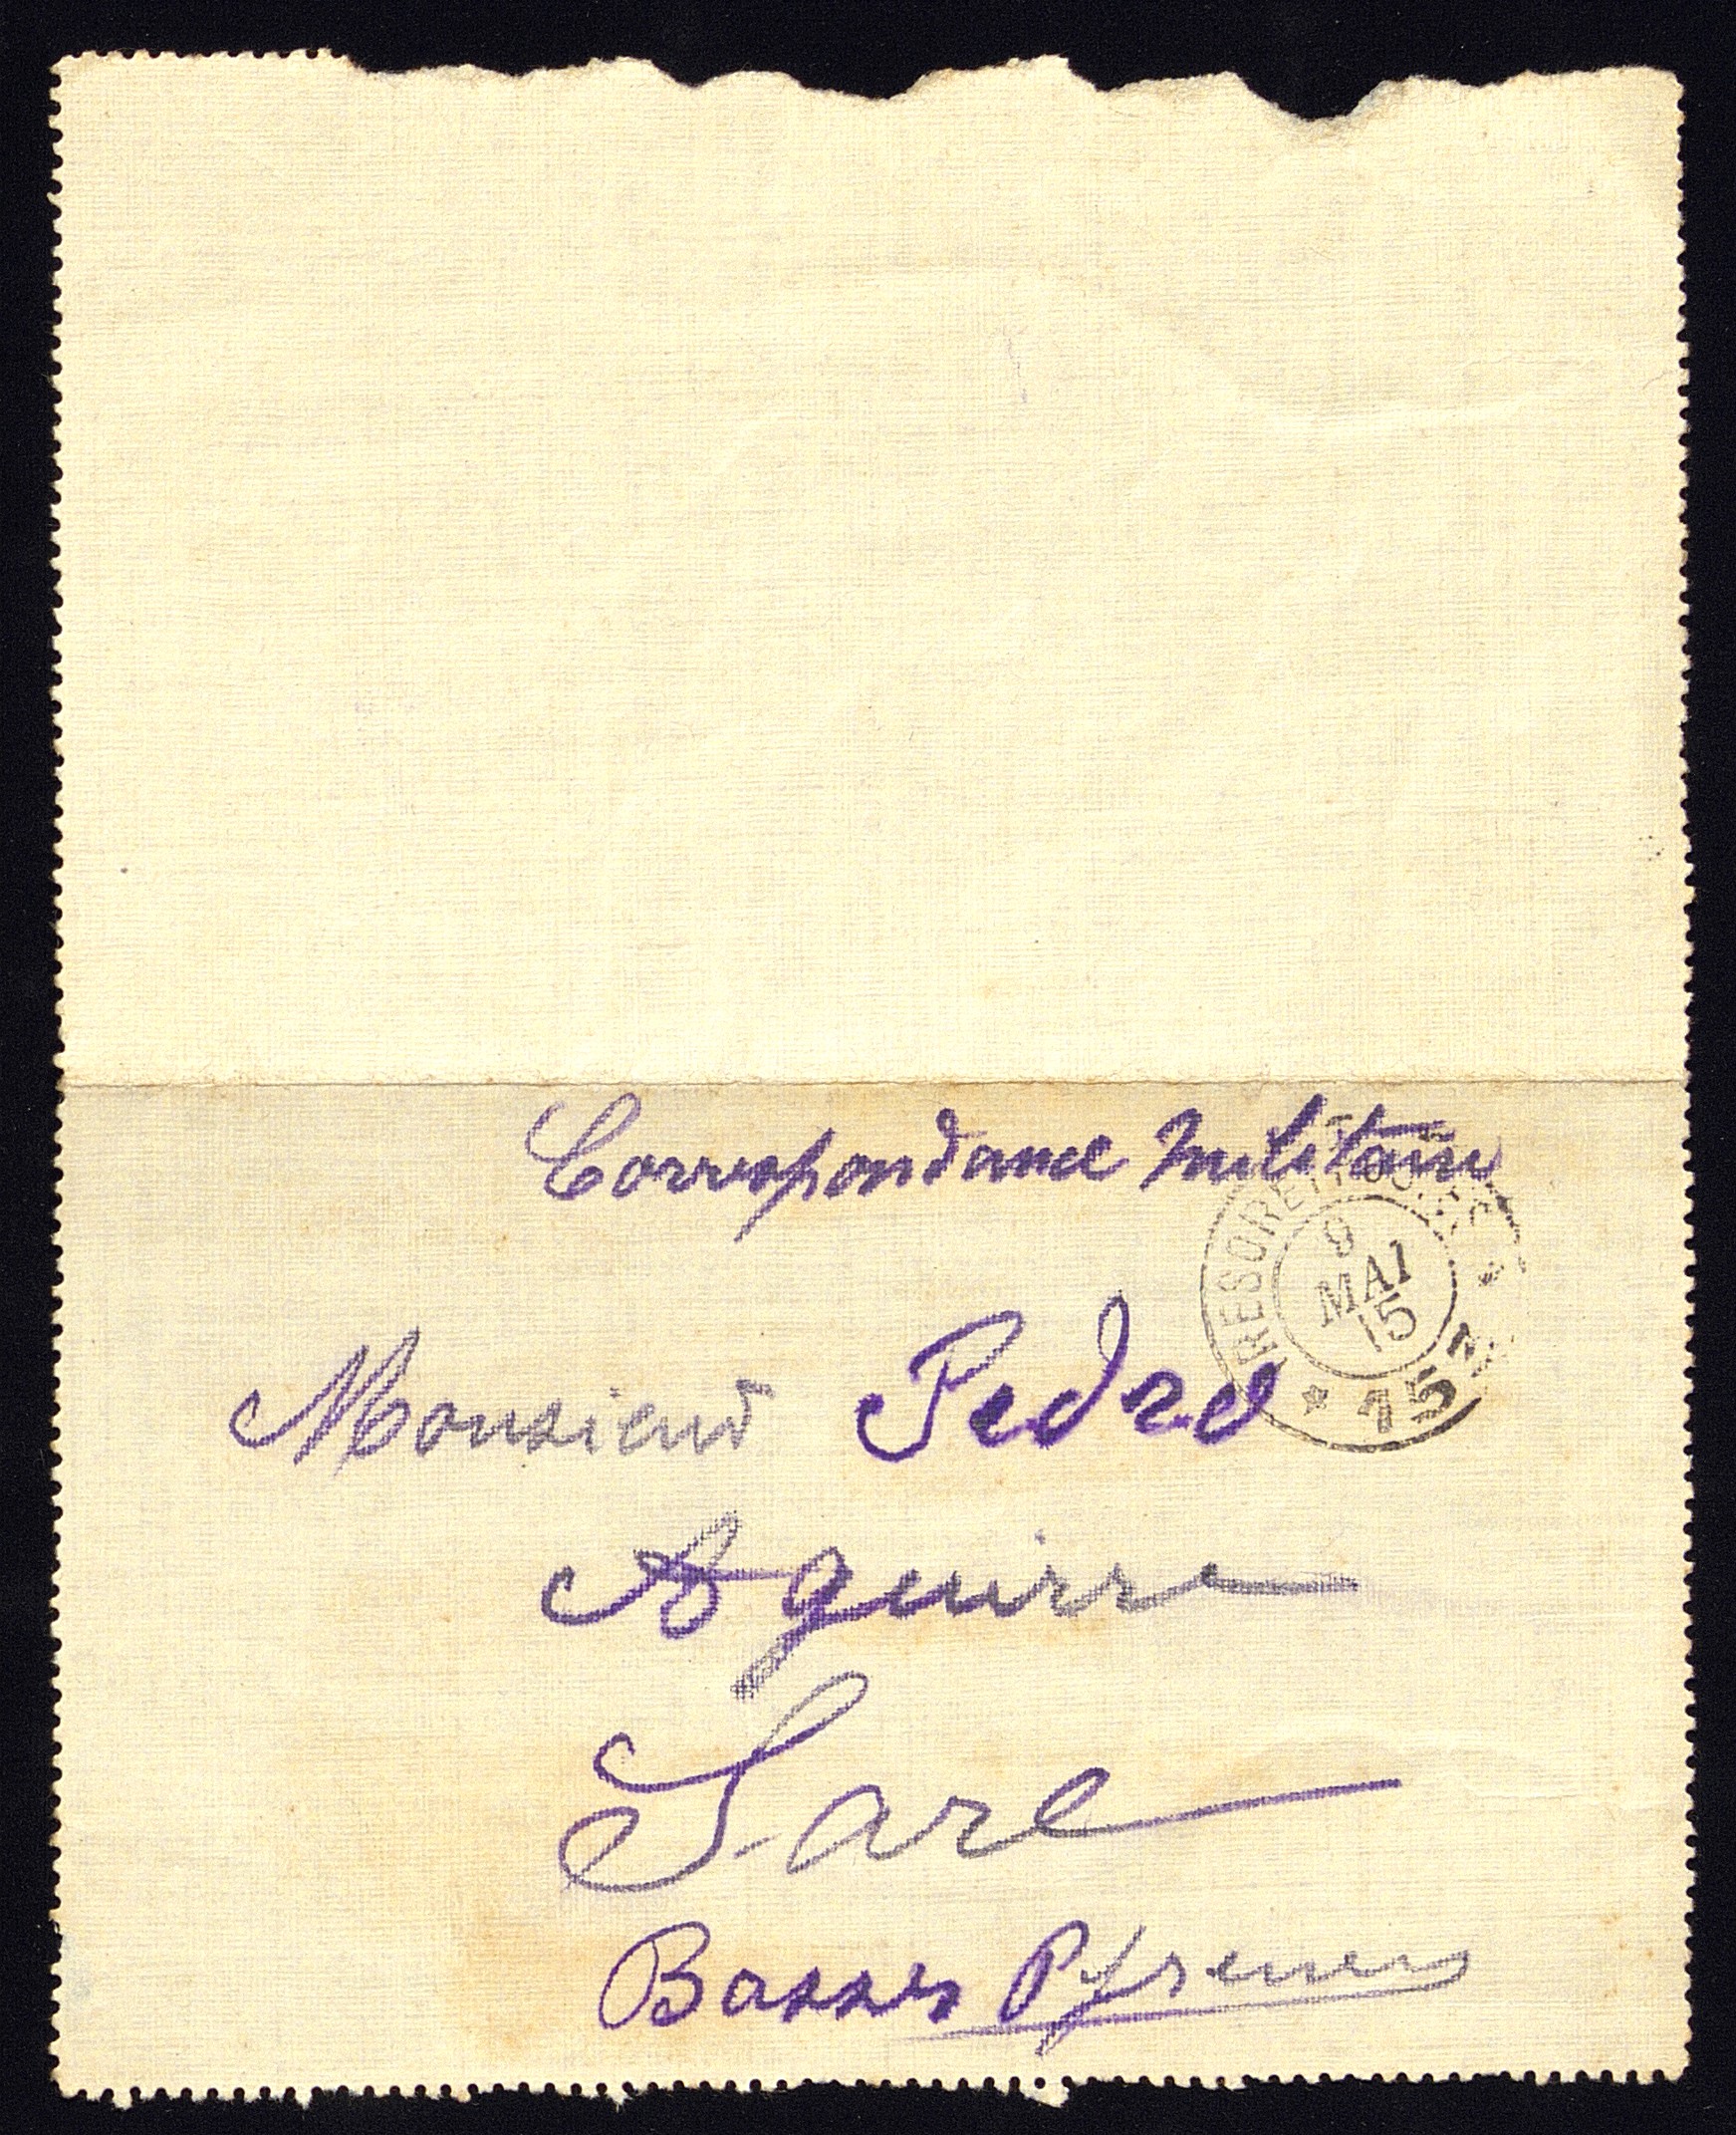 Correspondance Militaire
TRESOR ET POSTES
9
MAI
15
* 153 *
Monsieur Pedro
Aguirre
Sare
Basses Pyrenees